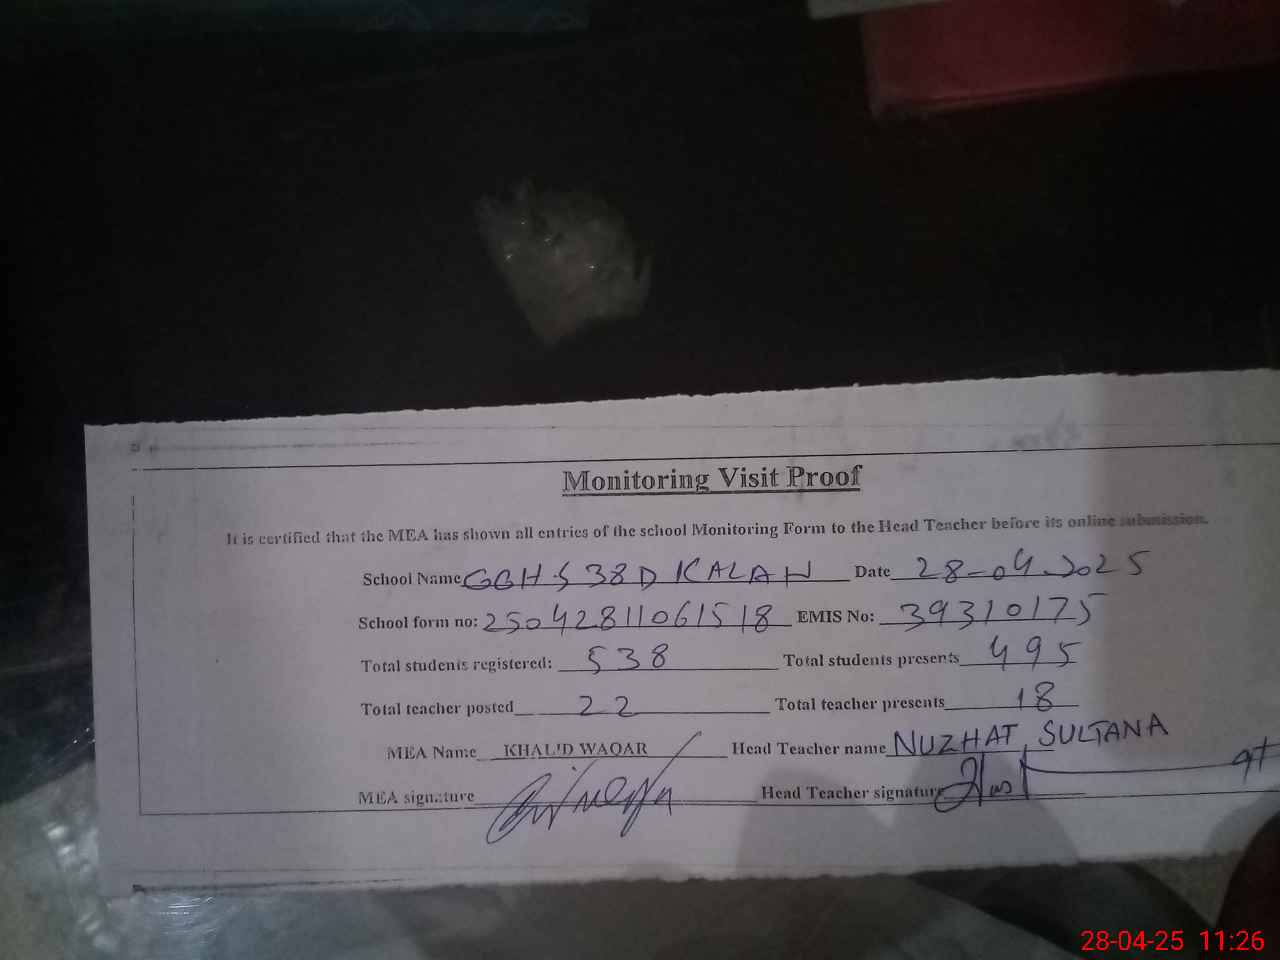 Monitoring Visit Proof
It is certified that the MEA has shown all entries of the school Monitoring Form to the Head Teacher before its online submission.
School Name GGHS 38 D KALAN Date 28-04-2025
School form no: 25042811061518 EMIS No: 39310175
Total students registered: 538 Total students presents 495
Total teacher posted 22 Total teacher presents 18
MEA Name KHALID WAQAR Head Teacher name NUZHAT SULTANA
MEA signature Head Teacher signature
28-04-25 11:26